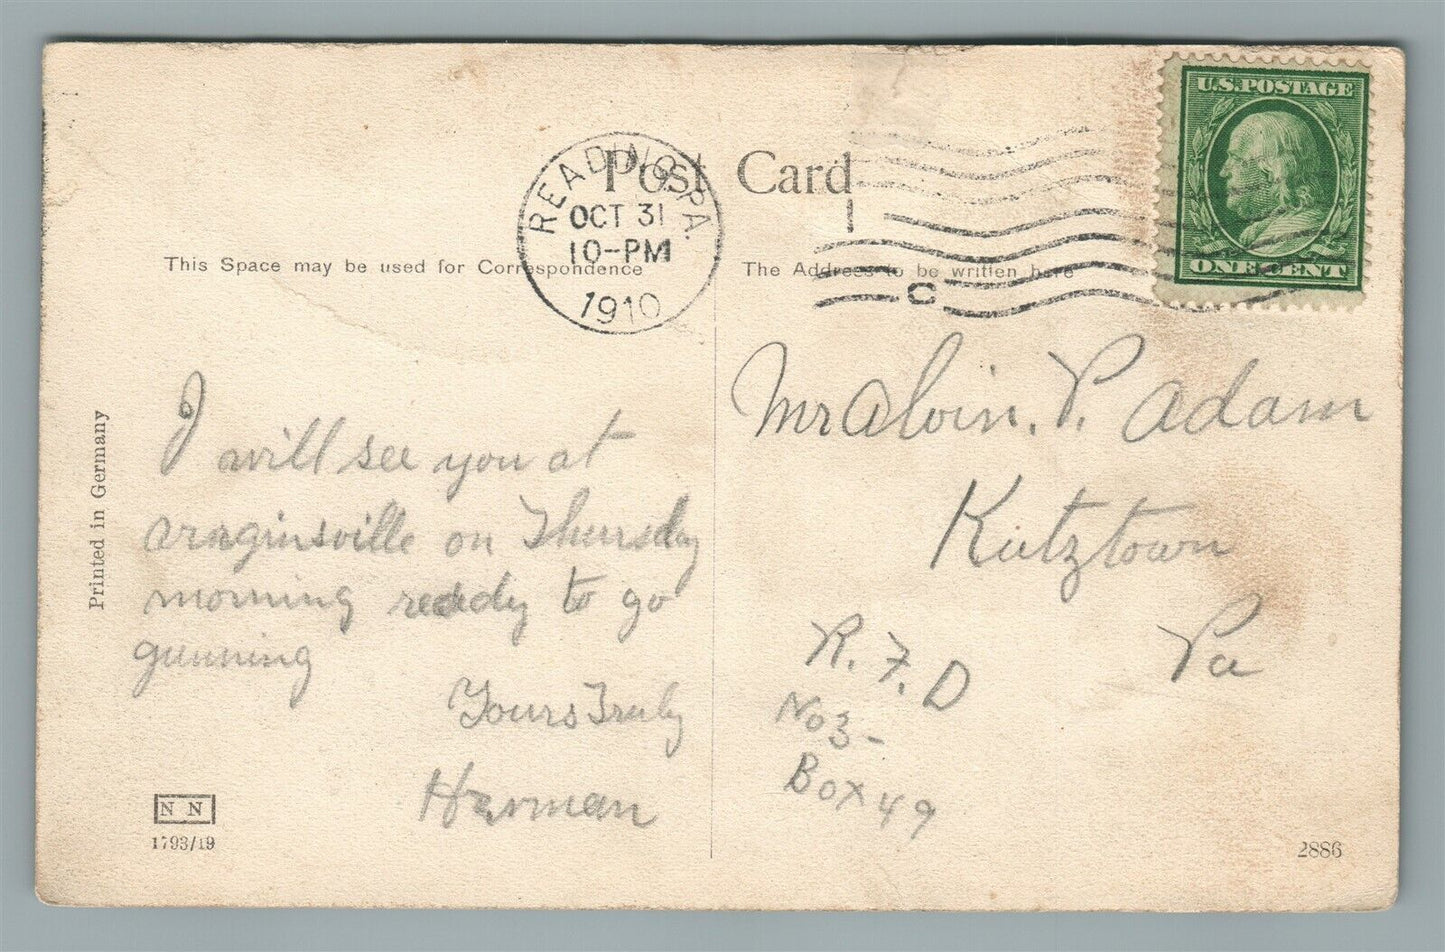 U.S. POSTAGE
ONE CENT
READING, PA.
OCT 31
10-PM
1910
1
C
Post Card
This Space may be used for Correspondence
The Address to be written here
Printed in Germany
I will see you at
on Thursday
morning ready to go
gunning
Yours Truly
Herman
Mr Alvin. P. Adam
Kutztown
Pa
R. F. D
No 3-
Box 49
N N
1793/19
2886